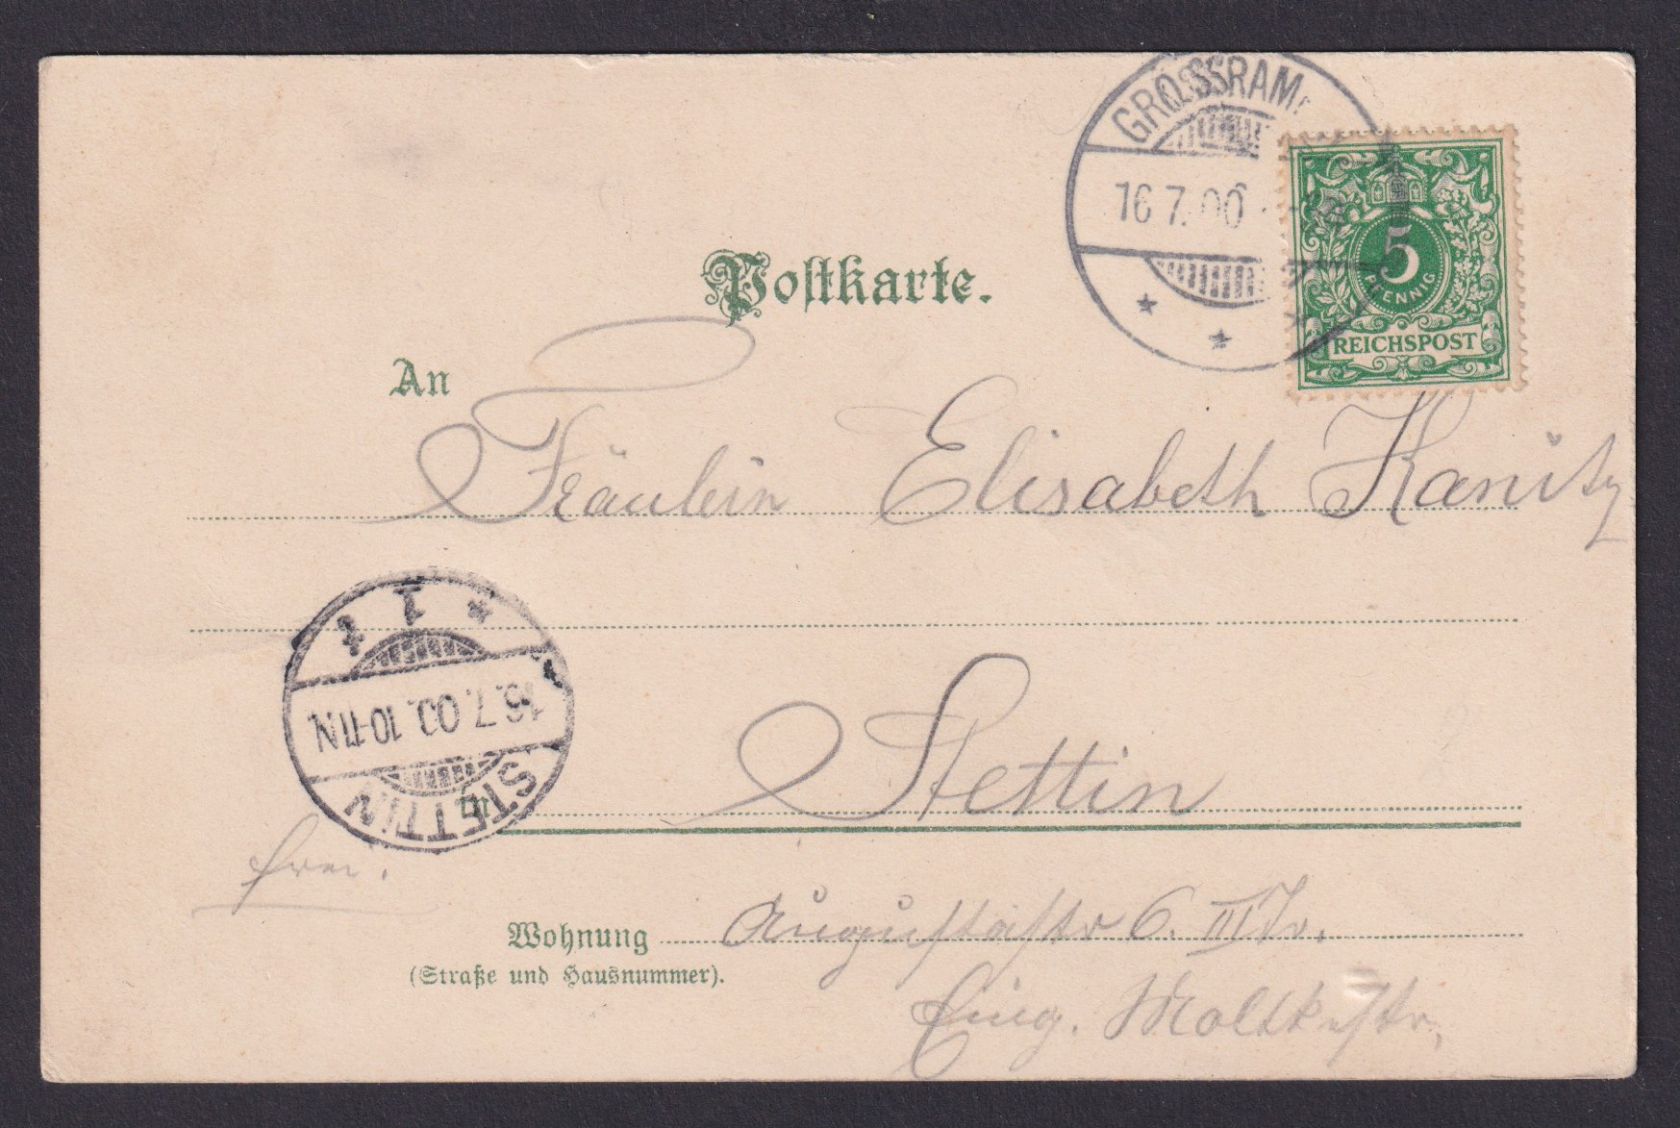 GROSSRAM
16.7.00
5
PFENNIG
REICHSPOST
Postkarte.
An
Fräulein Elisabeth Kanitz
* 1 t
16.7.00. 10-11N.
STETTIN
in
Stettin
frei.
Wohnung Augustastr 6. III Tr.
(Straße und Hausnummer).
Eing. Moltkestr.